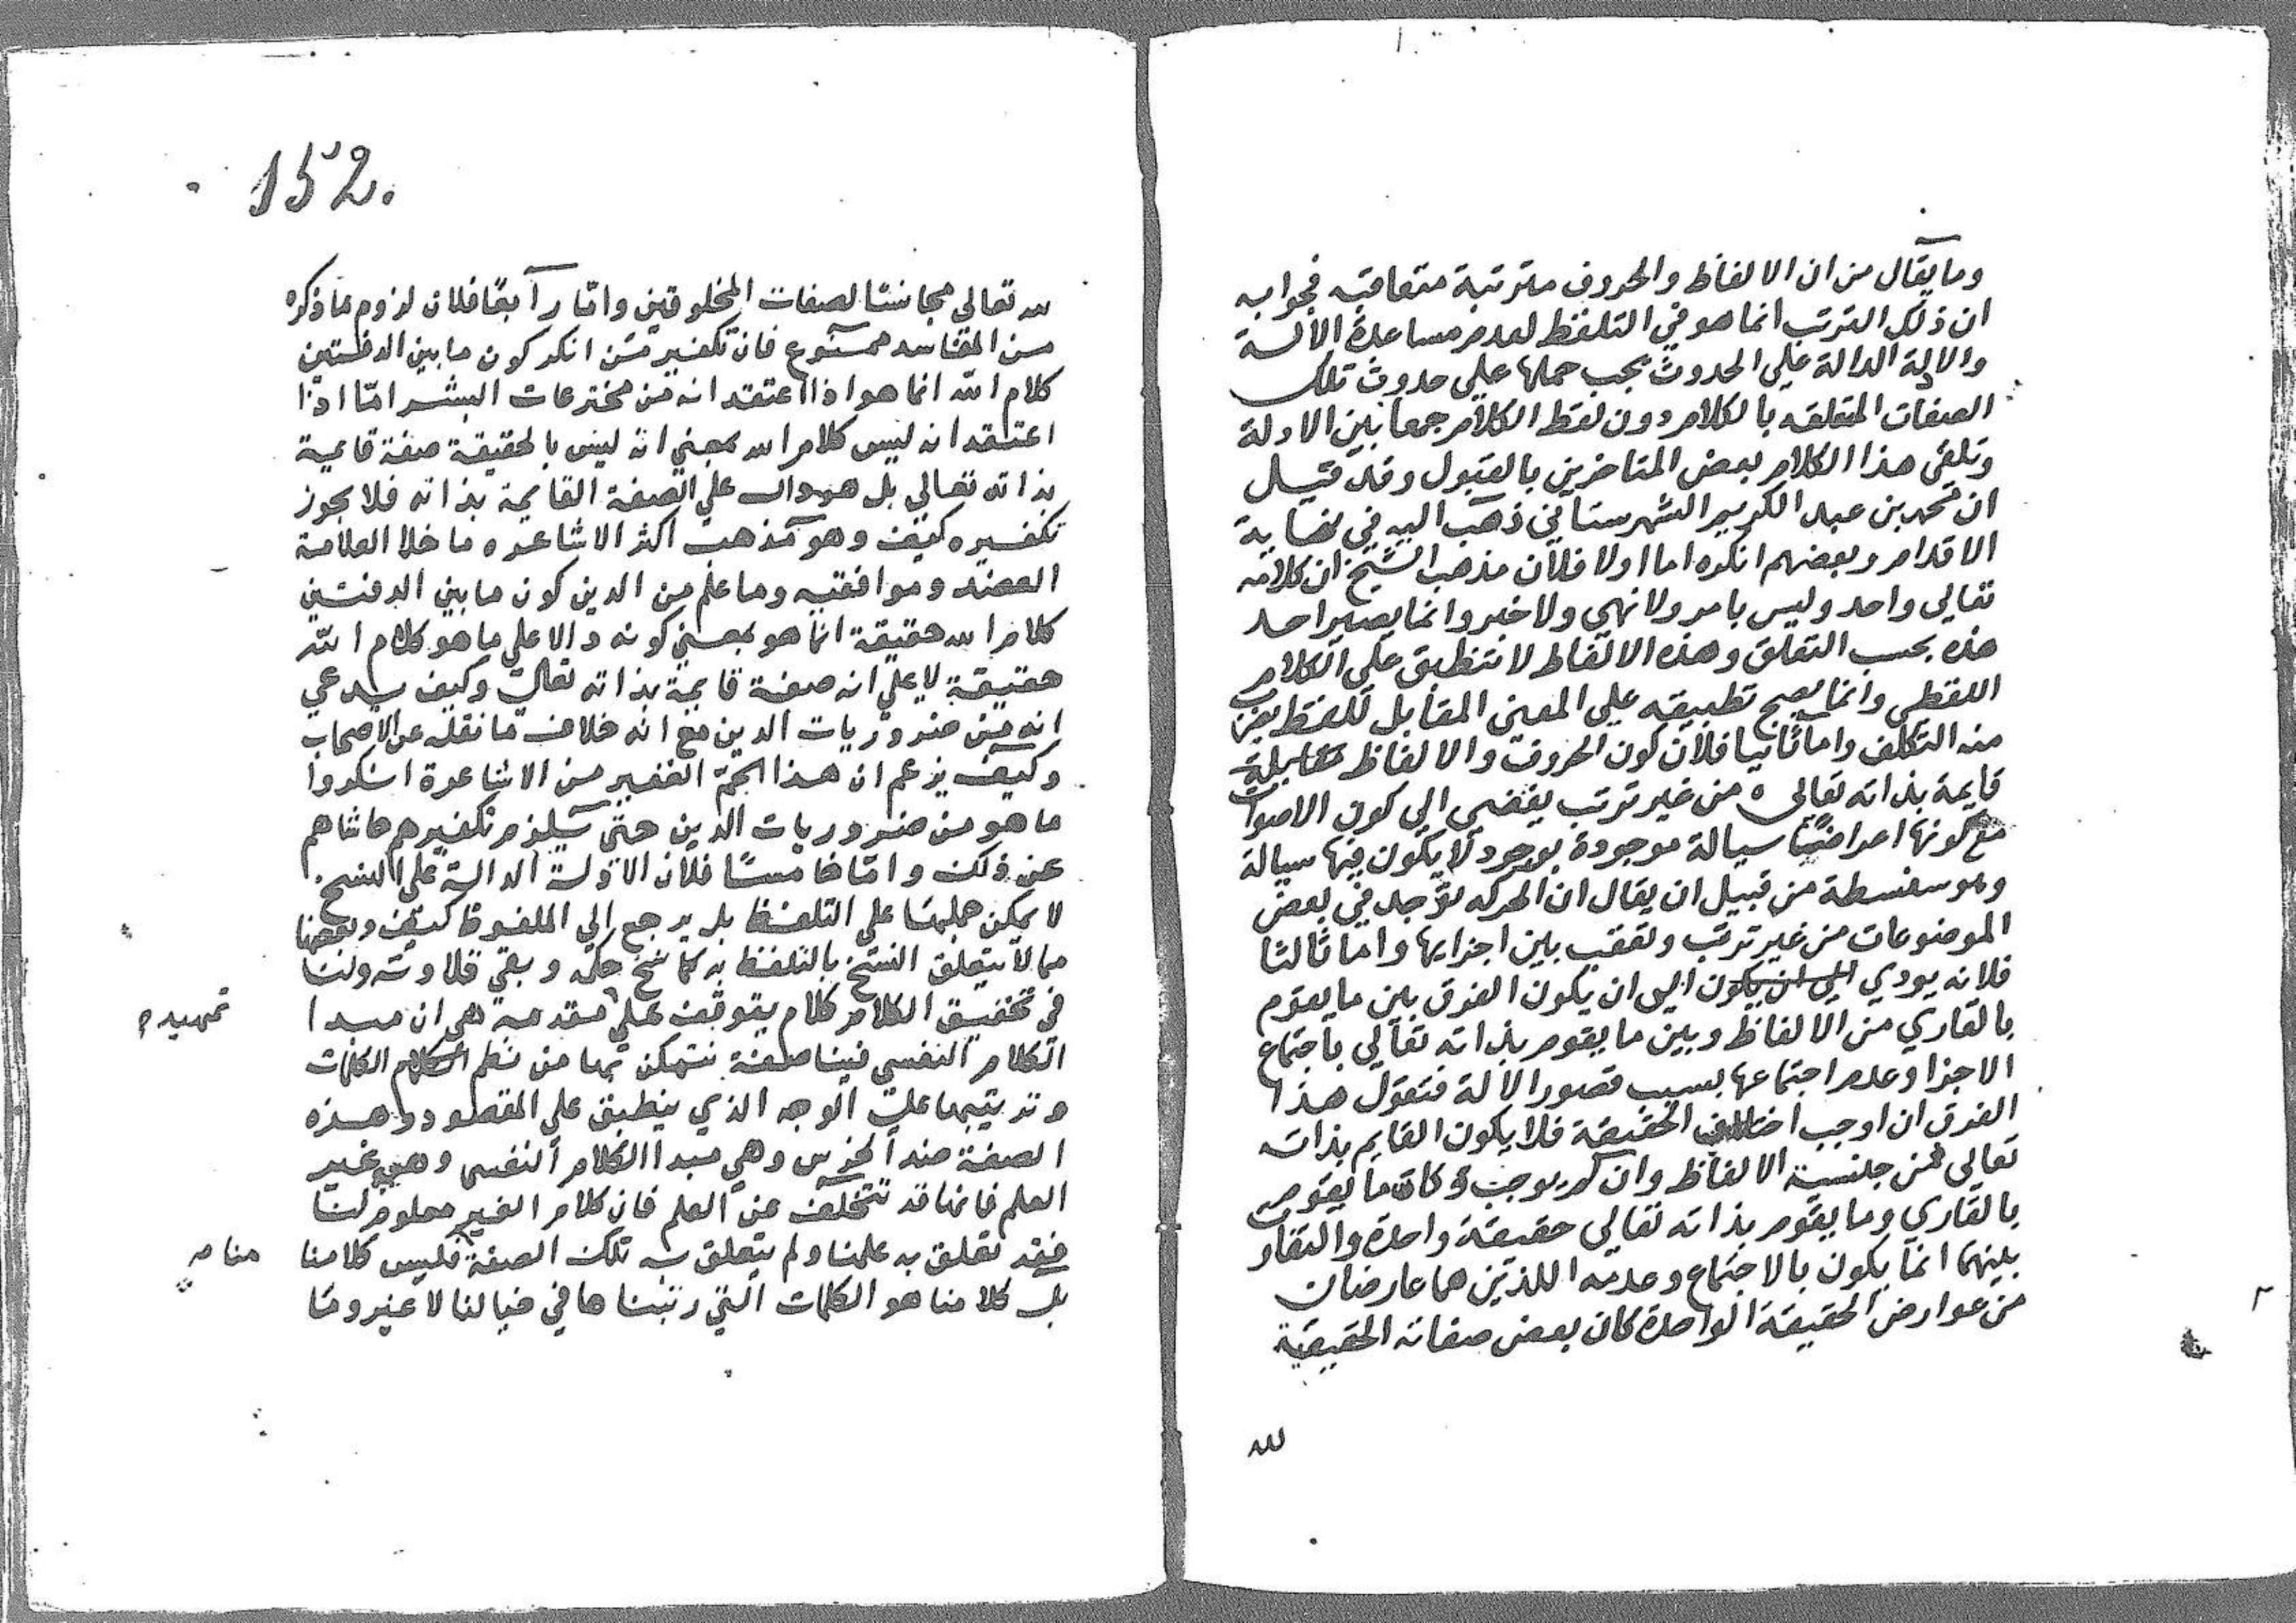 وما يقال من ان الالفاظ والحروف مترتبة متعاقبه فجوابه
ان ذلك الترتب انما هو في التلفظ لعدم مساعدة الالة
والادلة الدالة علي الحدوث يجب حملها علي حدوث تلك
الصفات المتعلقه بالكلام دون لفظ الكلام جمعا بين الادلة
وتلقى هذا الكلام بعض المتاخرين بالقبول وقد قيل
ان محمد بن عبد الكريم الشهرستاني ذهب اليه في نهاية
الاقدام وبعضهم انكره اما اولا فلان مذهب الشيخ ان كلامه
تعالي واحد وليس بامر ولا نهي ولا خبر وانما يصير احد
هذه بحسب التعلق وهذه الالفاظ لا تنطبق على الكلام
اللفظي وانما يصح تطبيقه علي المعنى المقابل للفظ بضرب
منه التكلف واما ثانيا فلان كون الحروف والالفاظ
قايمة بذاته تعالى من غير ترتب يفضى الي كون الاصوات
مع كونها اعراضا سيالة موجودة بوجود لا يكون فيها سيالة
وهو سفسطة من قبيل ان يقال ان الحركه توجد في بعض
الموضوعات من غير ترتب وتعقب بين اجزايها واما ثالثا
فلانه يودي الي ان يكون الي ان يكون الفرق بين ما يقوم
بالقاري من الالفاظ وبين ما يقوم بذاته تعالي باجتماع
الاجزا وعدم اجتماعها بسبب قصور الالة فنقول هذا
الفرق ان اوجب اختلاف الحقيقة فلا يكون القايم بذاته
تعالى من جنسية الالفاظ وان لم يوجب وكان ما يقوم
بالقاري وما يقوم بذاته تعالى حقيقة واحدة والتفاوت
بينهما انما يكون بالاجتماع وعدمه اللذين هما عارضان
من عوارض الحقيقة الواحدة كان بعض صفاته الحقيقية
لله
152.
لله تعالى مجانسا لصفات المخلوقين واما رابعا فلان لزوم ما ذكره
من المفاسد ممنوع فان تكفير من انكر كون ما بين الدفتين
كلام الله انما هو اذا اعتقد انه من مخترعات البشر اما اذا
اعتقد انه ليس كلام الله بمعني انه ليس بالحقيقة صفة قايمية
بذاته تعالي بل هو دال علي الصفة القايمة بذاته فلا يجوز
تكفيره كيف وهو مذهب اكثر الاشاعره ما خلا العلامة
العضد وموافقيه وما علم من الدين كون ما بين الدفتين
كلام الله حقيقة انما هو بمعني كونه دالا علي ما هو كلام الله
حقيقة لا علي انه صفة قايمة بذاته تعالي وكيف يدعي
انه من ضروريات الدين مع انه خلاف ما نقله عن الاصحاب
وكيف يزعم ان هذا الجم الغفير من الاشاعرة انكروا
ما هو من ضروريات الدين حتى يلزم تكفيرهم حاشاهم
عن ذلك واما خامسا فلان الادلة الدالة على النسخ
لا يمكن حملها على التلفظ بل يرجع الي الملفوظ كيف وبعضها
مما لا يتعلق النسخ بالتلفظ به كما نسخ حكمه وبقي تلاوته ولنا
في تحقيق الكلام كلام يتوقف على مقدمة هي ان مبدا
تمهيد
الكلام النفسي فينا صفة نتمكن بها من نظم الكلام الكلمات
وترتيبها على الوجه الذي ينطبق على المقصود وهذه
الصفة ضد الخرس وهي مبدا الكلام النفسي وهي غير
العلم فانها قد تتخلف عن العلم فان كلام الغير معلوم لنا
فقد تعلق به علمنا ولم يتعلق به تلك الصفة فليس كلامنا
بل كلامنا هو الكلمات التي رتبناها في خيالنا لا غير وما